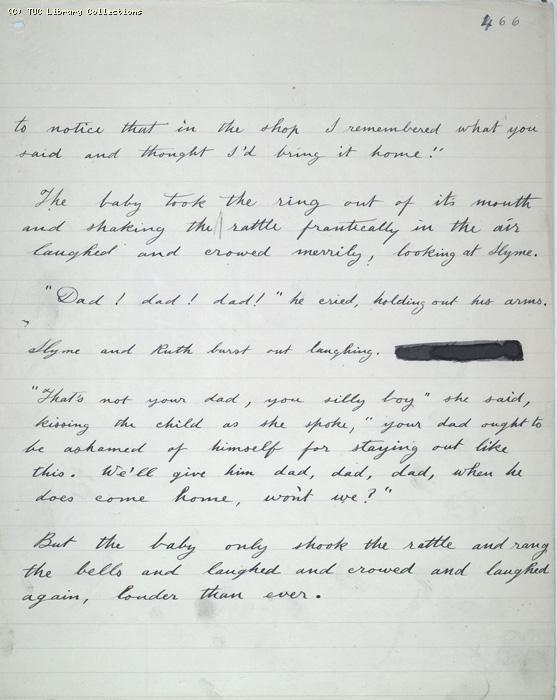 (C) TUC Library Collections
466
to notice that in the shop I remembered what you
said and thought I'd bring it home."
The baby took the ring out of its mouth
and shaking the rattle frantically in the air
laughed and crowed merrily, looking at Slyme.
"Dad! dad! dad!" he cried, holding out his arms.
Slyme and Ruth burst out laughing.
"That's not your dad, you silly boy" she said,
kissing the child as she spoke, "your dad ought to
be ashamed of himself for staying out like
this. We'll give him dad, dad, dad, when he
does come home, won't we?"
But the baby only shook the rattle and rang
the bells and laughed and crowed and laughed
again, louder than ever.